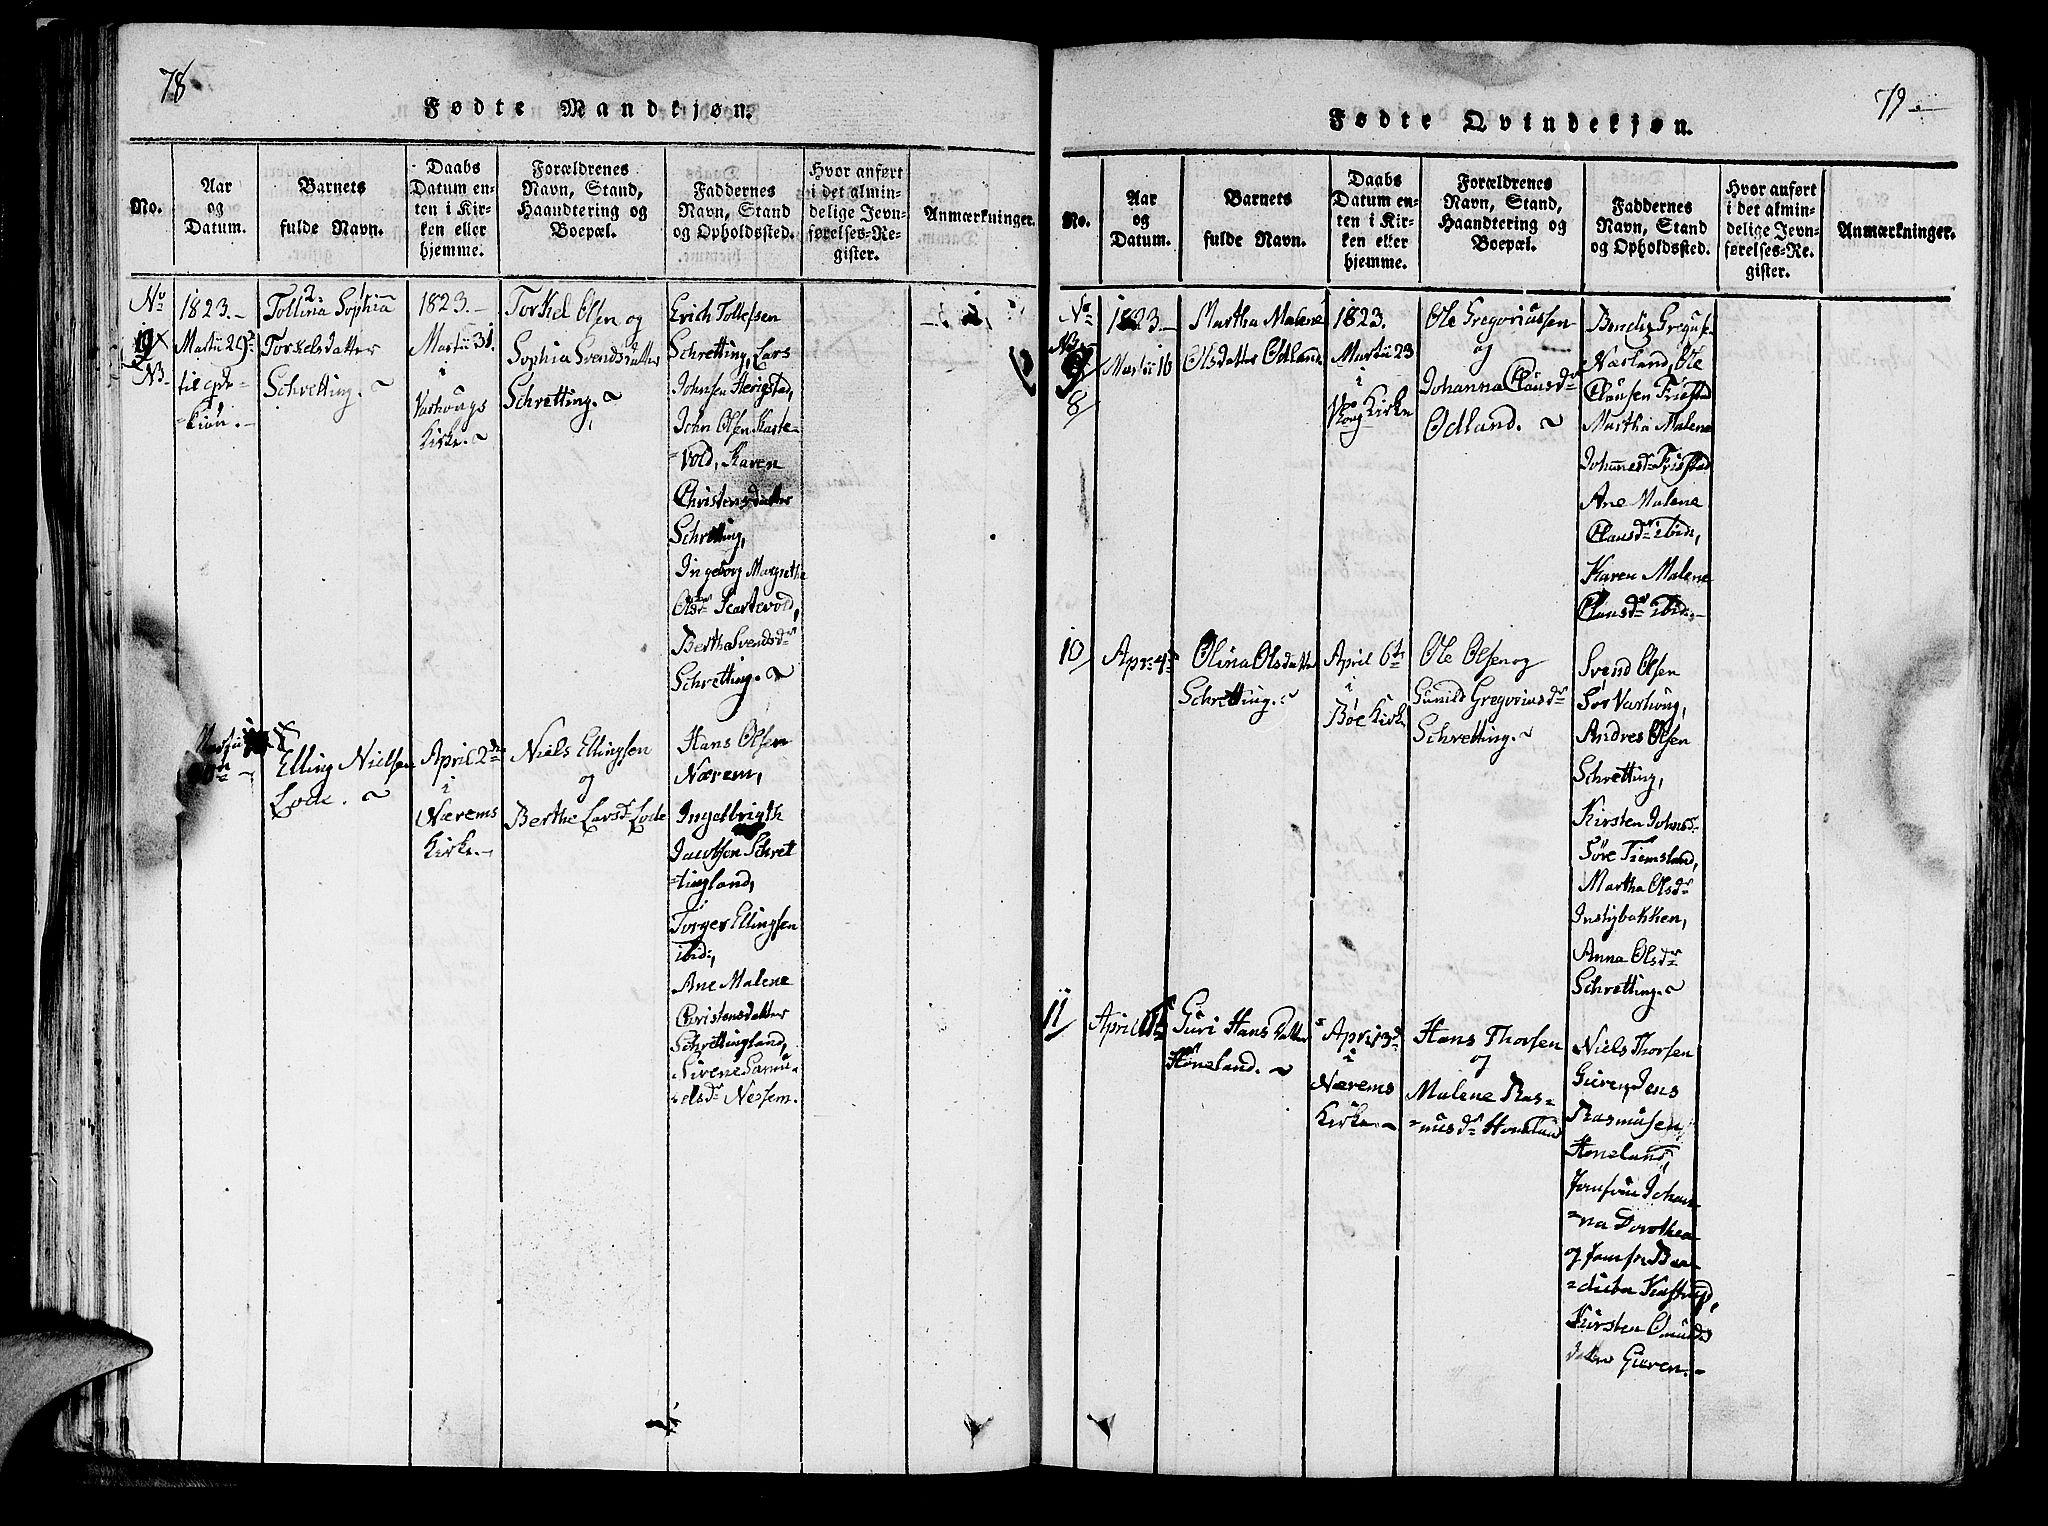 78
Fødte Mandkjøn.
No.
Aar
og
Datum.
Barnets
fulde Navn.
Daabs
Datum en-
ten i Kir-
ken eller
hjemme.
Forældrenes
Navn, Stand,
Haandtering og
Boepæl.
Faddernes
Navn, Stand
og Opholdssted.
Hvor anført
i det almin-
delige Jevn-
førelses-Re-
gister.
Anmærkninger.
No
1823.-
Martii 29de
til qde-
kiøn.-
Tollina Sophia
Torkelsdatter
Schretting.
1823.-
Martii 31
i
Varhougs
Kirke.
Torkel Olsen og
Sophia Svendsdatter
Schretting.
Erich Tollefsen
Schretting, Lars
Johnsen Herigstad,
John Olsen Karte-
=vold, Karen
Christensdatter
Schretting,
Ingeborg Margrethe
Olsdr Kartevold,
Bertha Svendsdr
Schretting.
Martii
Elling Nielsen
Lode.
April 2den
i
Nærems
Kirke.-
Niels Ellingsen
og
Berthe Larsdr Lode
Hans Olsen
Nærem,
Ingelbrigth
Jacobson Schret
=tingland,
Torger Ellingsen
ibid:,
Ane Malene
Christensdatter
Schrettingland,
Sirene Samu-
=elsdr Nessem.
79
Fødte Qvindekjøn.
No.
Aar
og
Datum.
Barnets
fulde Navn.
Daabs
Datum en-
ten i Kir-
ken eller
hjemme.
Forældrenes
Navn, Stand,
Haandtering og
Boepæl.
Faddernes
Navn, Stand
og Opholdssted.
Hvor anført
i det almin-
delige Jevn-
førelses-Re-
gister.
Anmærkninger.
No
8
1823.-
Martii 16
Martha Malene
Olsdatter Odland
1823.
Martii 23
i
Kirke
Ole Gregoriussen
og
Johanna Clausdr
Odland.
Bendix Gregus.
Næsland, Ole
Clausen Friestad
Martha Malene
Johannesdr Fristad
Ane Malene
Clausdr ibid:,
Karen Malene
Clausdr ibid:-
10
Apr: 4de
Olina Olsdatter
Schretting.
April 6te
i
Bøe Kirke
Ole Olsen og
Gunild Gregoriusdr
Schretting.
Svend Olsen
Sør Varhoug,
Andres Olsen
Schretting,
Kirsten Johnsdr
Søre Tiemsland,
Martha Olsdr
Instybakken,
Anna Olsdr
Schretting.
11
April
Guri Hansdatter
Høneland.
April 3de
i
Nærems
Kirke.
Hans Thorsen
og
Malene Ras=
=musdr Høneland
Niels Thorsen
Gieren, Jens
Rasmusen
Høneland,
Jomfru Johan-
=na Dorothea
og Jomfr. Bene-
=dicta Kastrup,
Kirsten Omunds
datter Gieren.-